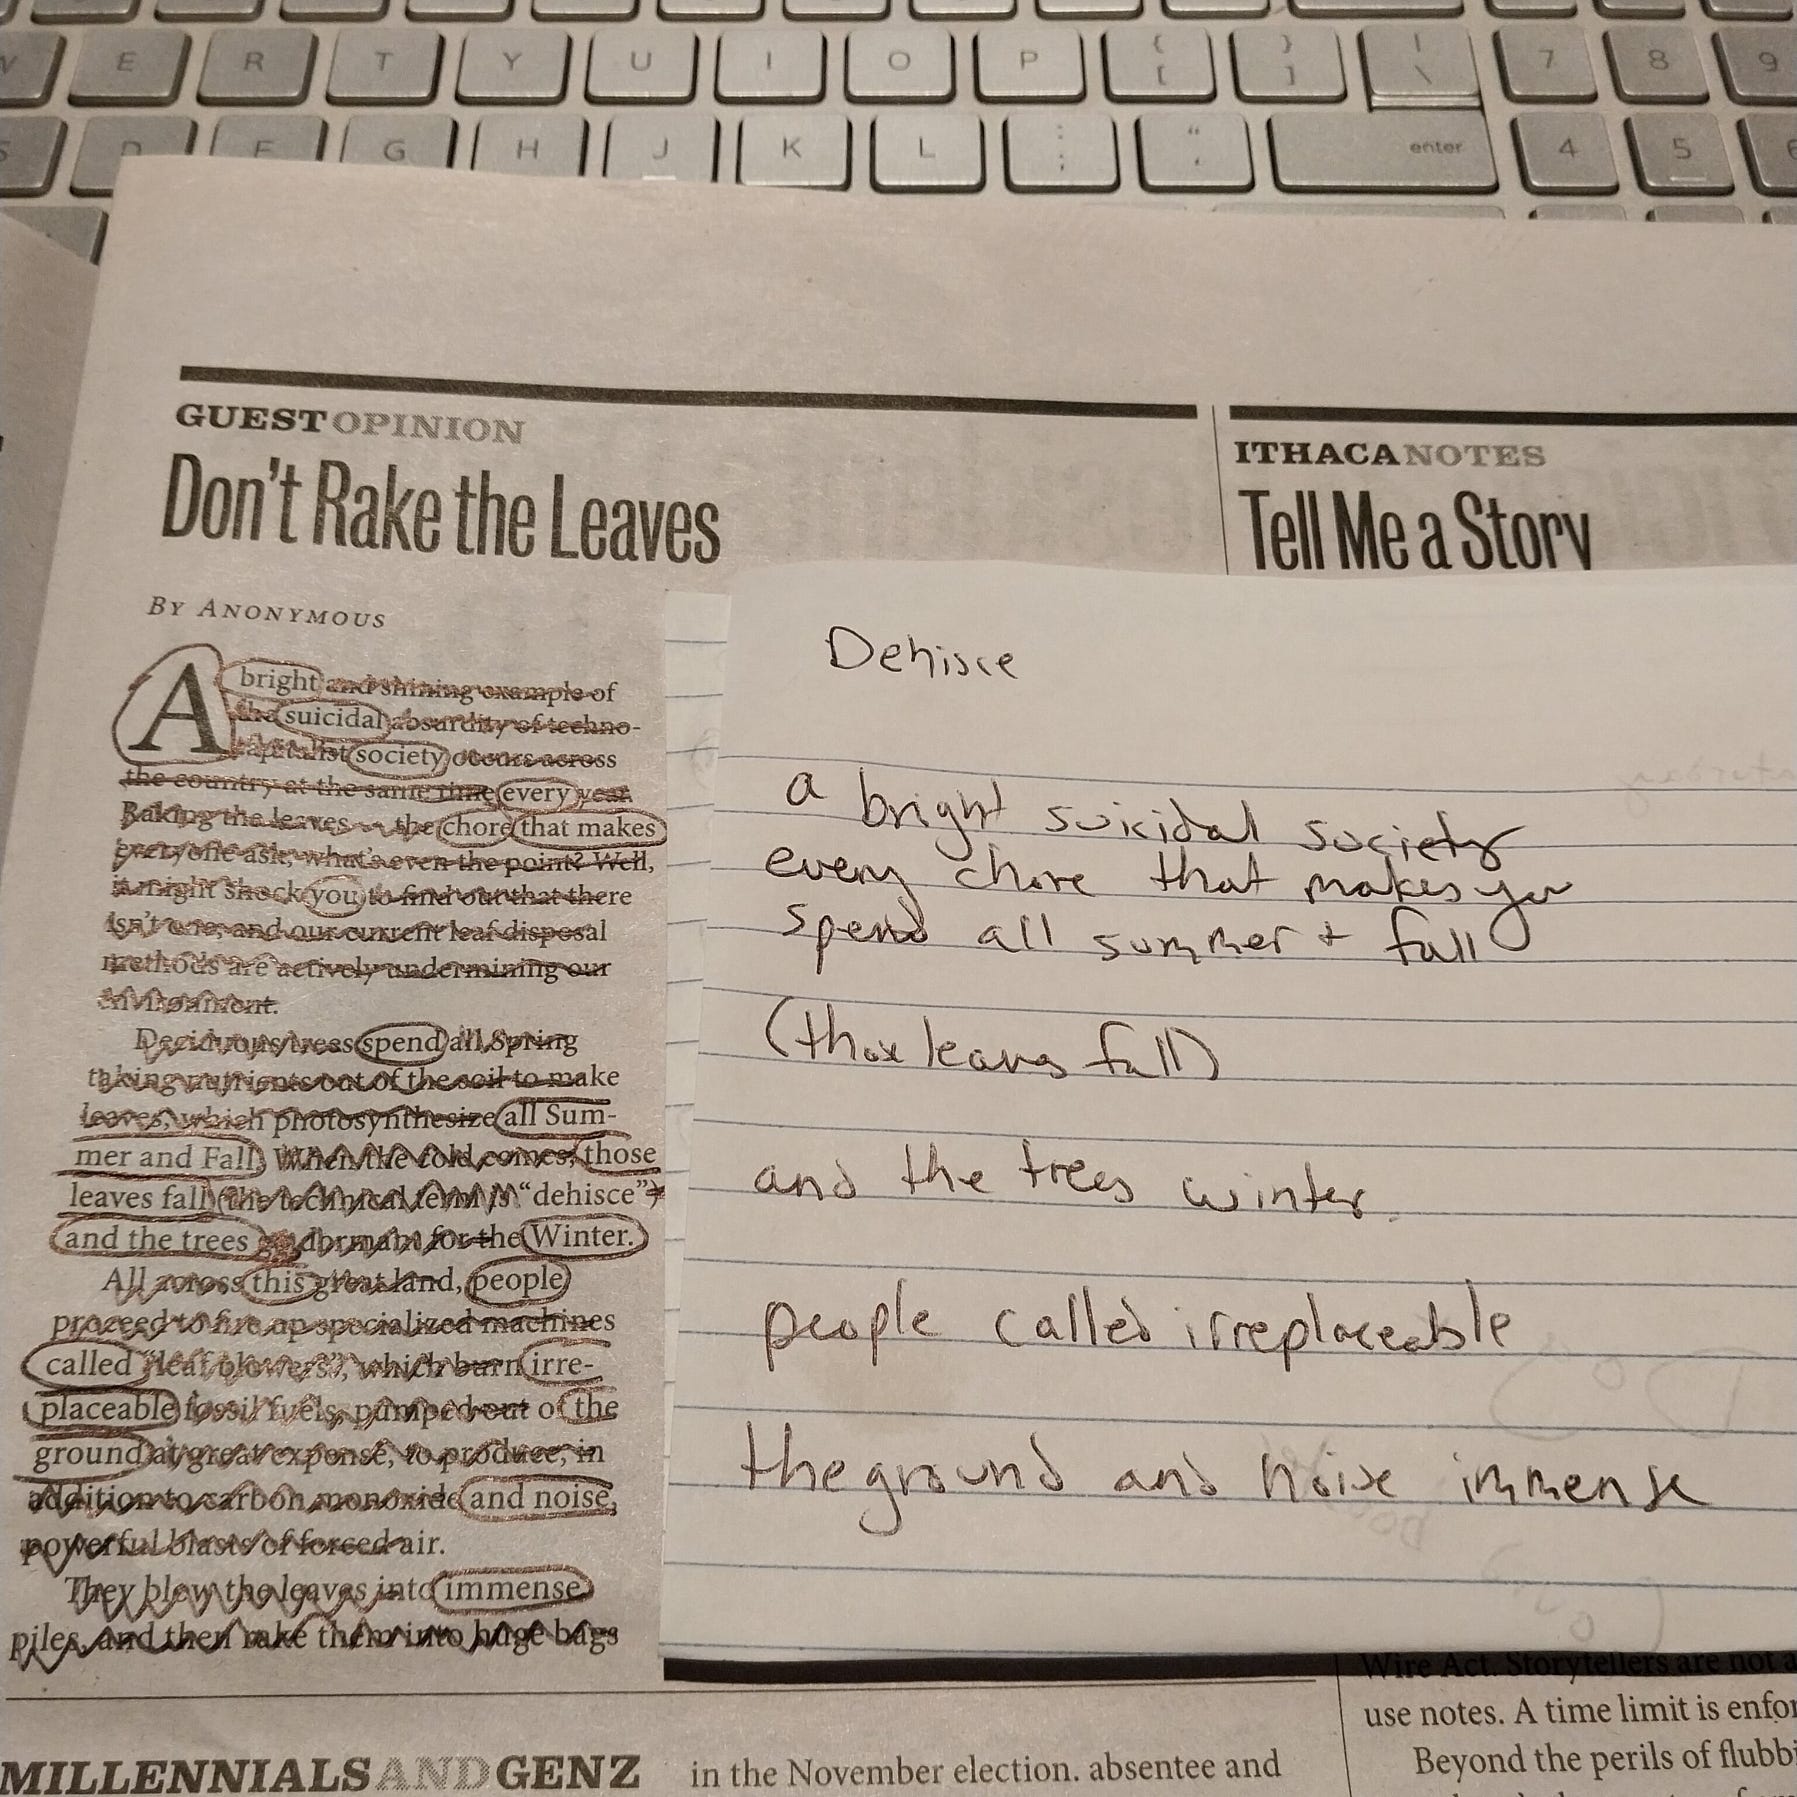 E R T Y U I O P { [ } ] | \ 7 8 9
S D F G H J K L : ; " ' enter 4 5 6
GUESTOPINION
Don't Rake the Leaves
BY ANONYMOUS
A bright and shining example of
the suicidal absurdity of techno-
capitalist society occurs across
the country at the same time every year.
Raking the leaves — the chore that makes
everyone ask, what's even the point? Well,
it might shock you to find out that there
isn't one, and our current leaf disposal
methods are actively undermining our
environment.
Deciduous trees spend all Spring
taking nutrients out of the soil to make
leaves, which photosynthesize all Sum-
mer and Fall. When the cold comes, those
leaves fall (the technical term is "dehisce")
and the trees go dormant for the Winter.
All across this great land, people
proceed to fire up specialized machines
called "leaf blowers", which burn irre-
placeable fossil fuels, pumped out of the
ground at great expense, to produce, in
addition to carbon monoxide and noise,
powerful blasts of forced air.
They blow the leaves into immense
piles, and then rake them into huge bags
ITHACANOTES
Tell Me a Story
Dehisce
a bright suicidal society
every chore that makes you
spend all summer + fall
(those leaves fall)
and the trees winter.
people called irreplaceable
the ground and noise immense
Wire Act. Storytellers are not a
use notes. A time limit is enfor
Beyond the perils of flubbi
MILLENNIALSANDGENZ
in the November election. absentee and